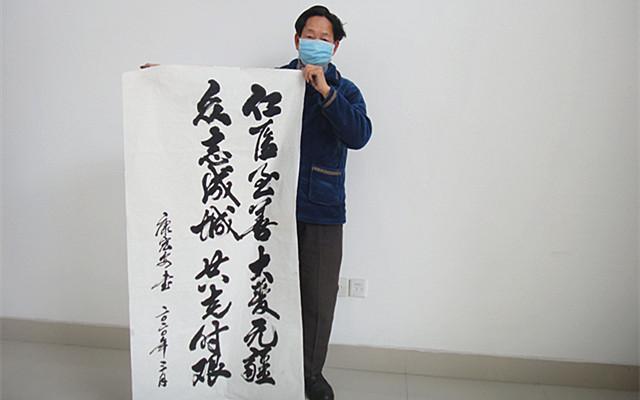 仁医至善大爱无疆
众志成城共克时艰
二〇二〇年二月